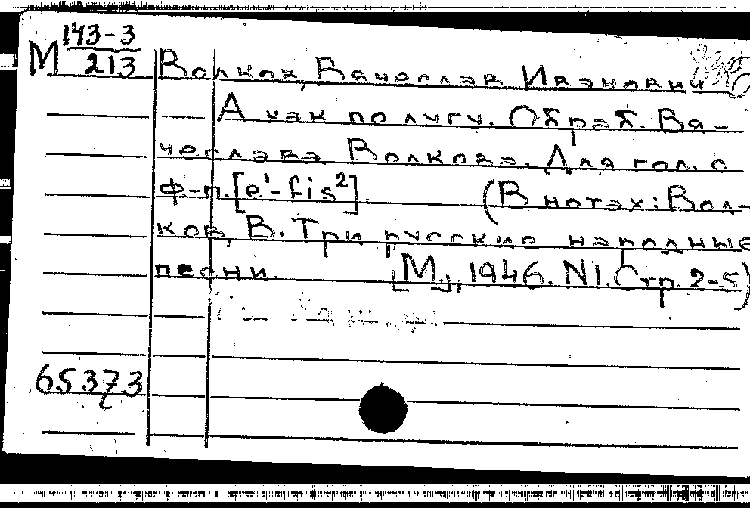 М 143-3
213
Волков, Вячеслав Иванович
А как по лугу. Обраб. Вя-
чеслава Волкова. Для гол. с
ф-п. [e¹-fis²]. (В нотах: Вол-
ков, В. Три русские народные
песни. [М.], 1946. N1. Стр. 2-5)
65373